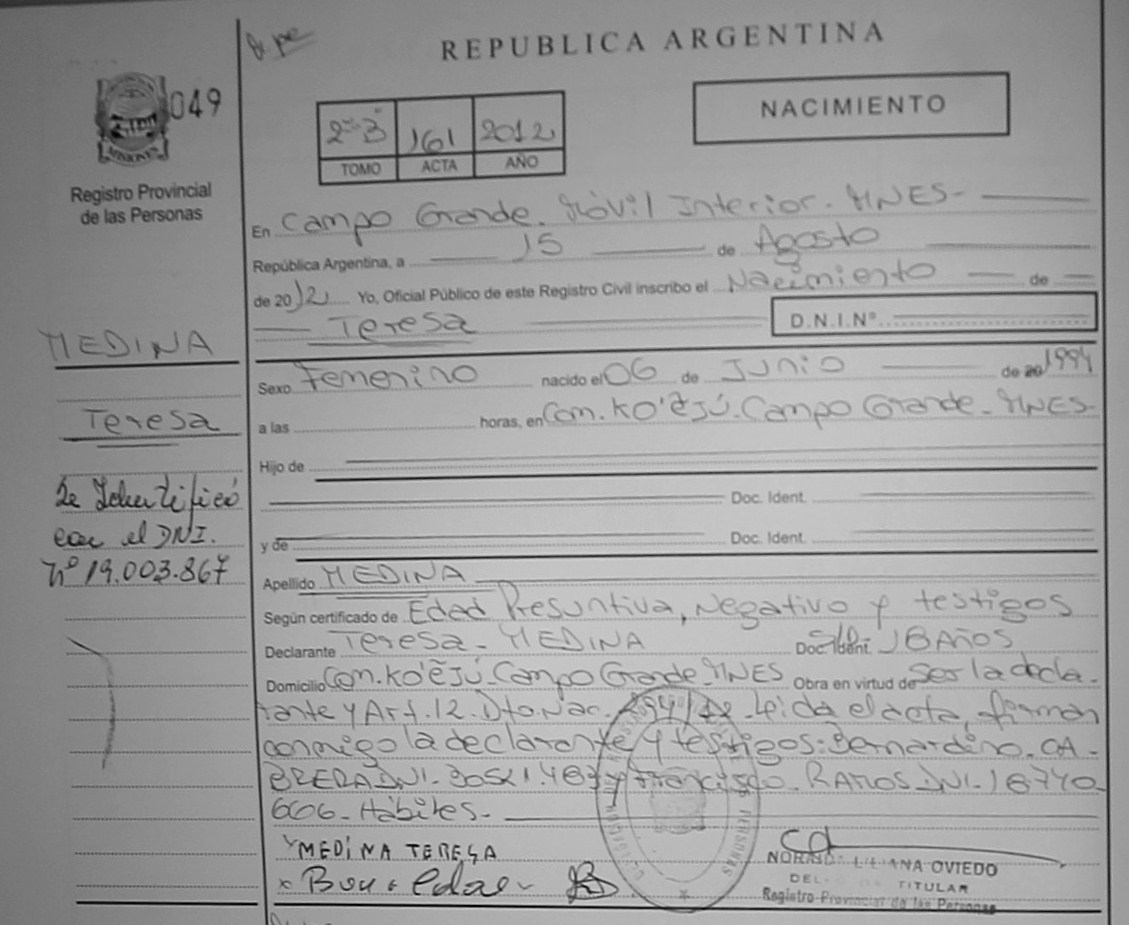 REPUBLICA ARGENTINA
049
MISIONES
Registro Provincial
de las Personas
2º-B 161 2012
TOMO ACTA AÑO
NACIMIENTO
En Campo Grande. Móvil Interior. MNES-
República Argentina, a 15 de Agosto
de 2012 Yo, Oficial Público de este Registro Civil inscribo el Nacimiento de
Teresa D.N.I.Nº
MEDINA
Sexo Femenino nacido el 06 de Junio de 20 1994
Teresa
a las horas, en Com. KO'ẽJÚ. Campo Grande. MNES-
Hijo de
Doc. Ident.
y de Doc. Ident.
Se Identificó
con el DNI.
Nº 19.003.867
Apellido MEDINA
Según certificado de Edad Presuntiva, Negativo y testigos
Declarante Teresa - MEDINA Doc. Ident. 18 AÑOS
Domicilio Com. KO'ẽJÚ. Campo Grande. MNES Obra en virtud de Ser la decla-
rante y Art. 12. Dto. Nac. Leida el acta, firman
conmigo la declarante y testigos: Bernardino. CA-
BRERA DNI. y Francisco. RAMOS DNI. 18740
606- Hábiles-
MEDINA TERESA
NORMA LILIANA OVIEDO
TITULAR
Registro Provincial de las Personas